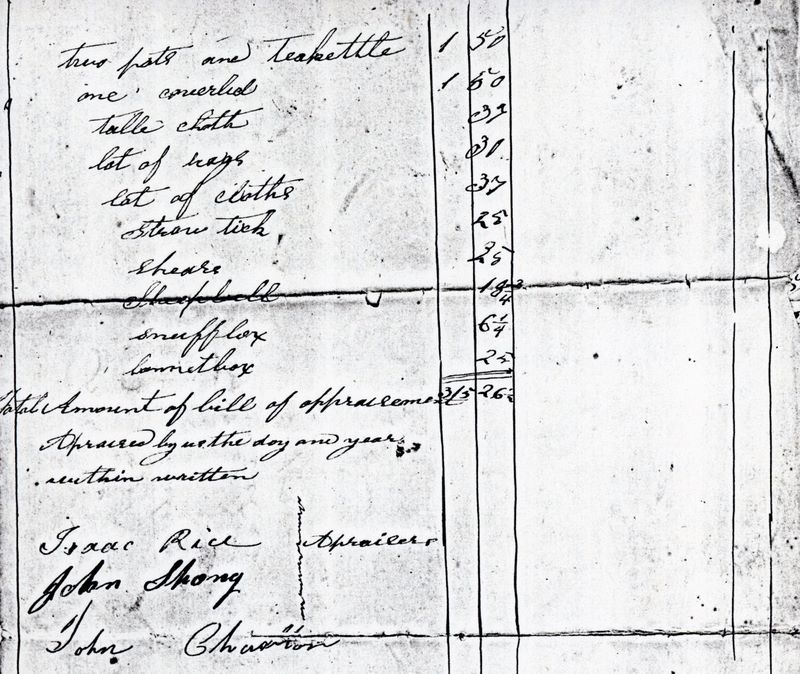 two pots and teakettle 1 50
one coverled 1 50
table cloth 39
lot of bags 31
lot of cloths 37
straw tick 25
shears 25
Sheepbell 18 3/4
snuffbox 6 1/4
bonnetbox 25
Total Amount of bill of appraisement 315 26
Apraised by us the day and year
within written
Isaac Rice Apraisers
John Shong
John